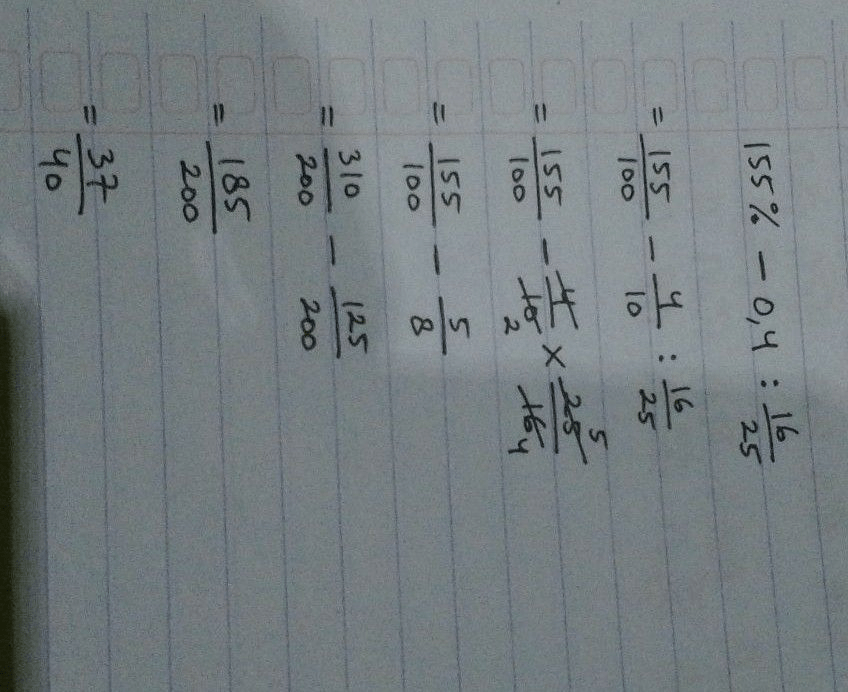 155% - 0,4 : 16/25
= 155/100 - 4/10 : 16/25
= 155/100 - 4/10 2 × 25/16 5 4
= 155/100 - 5/8
= 310/200 - 125/200
= 185/200
= 37/40